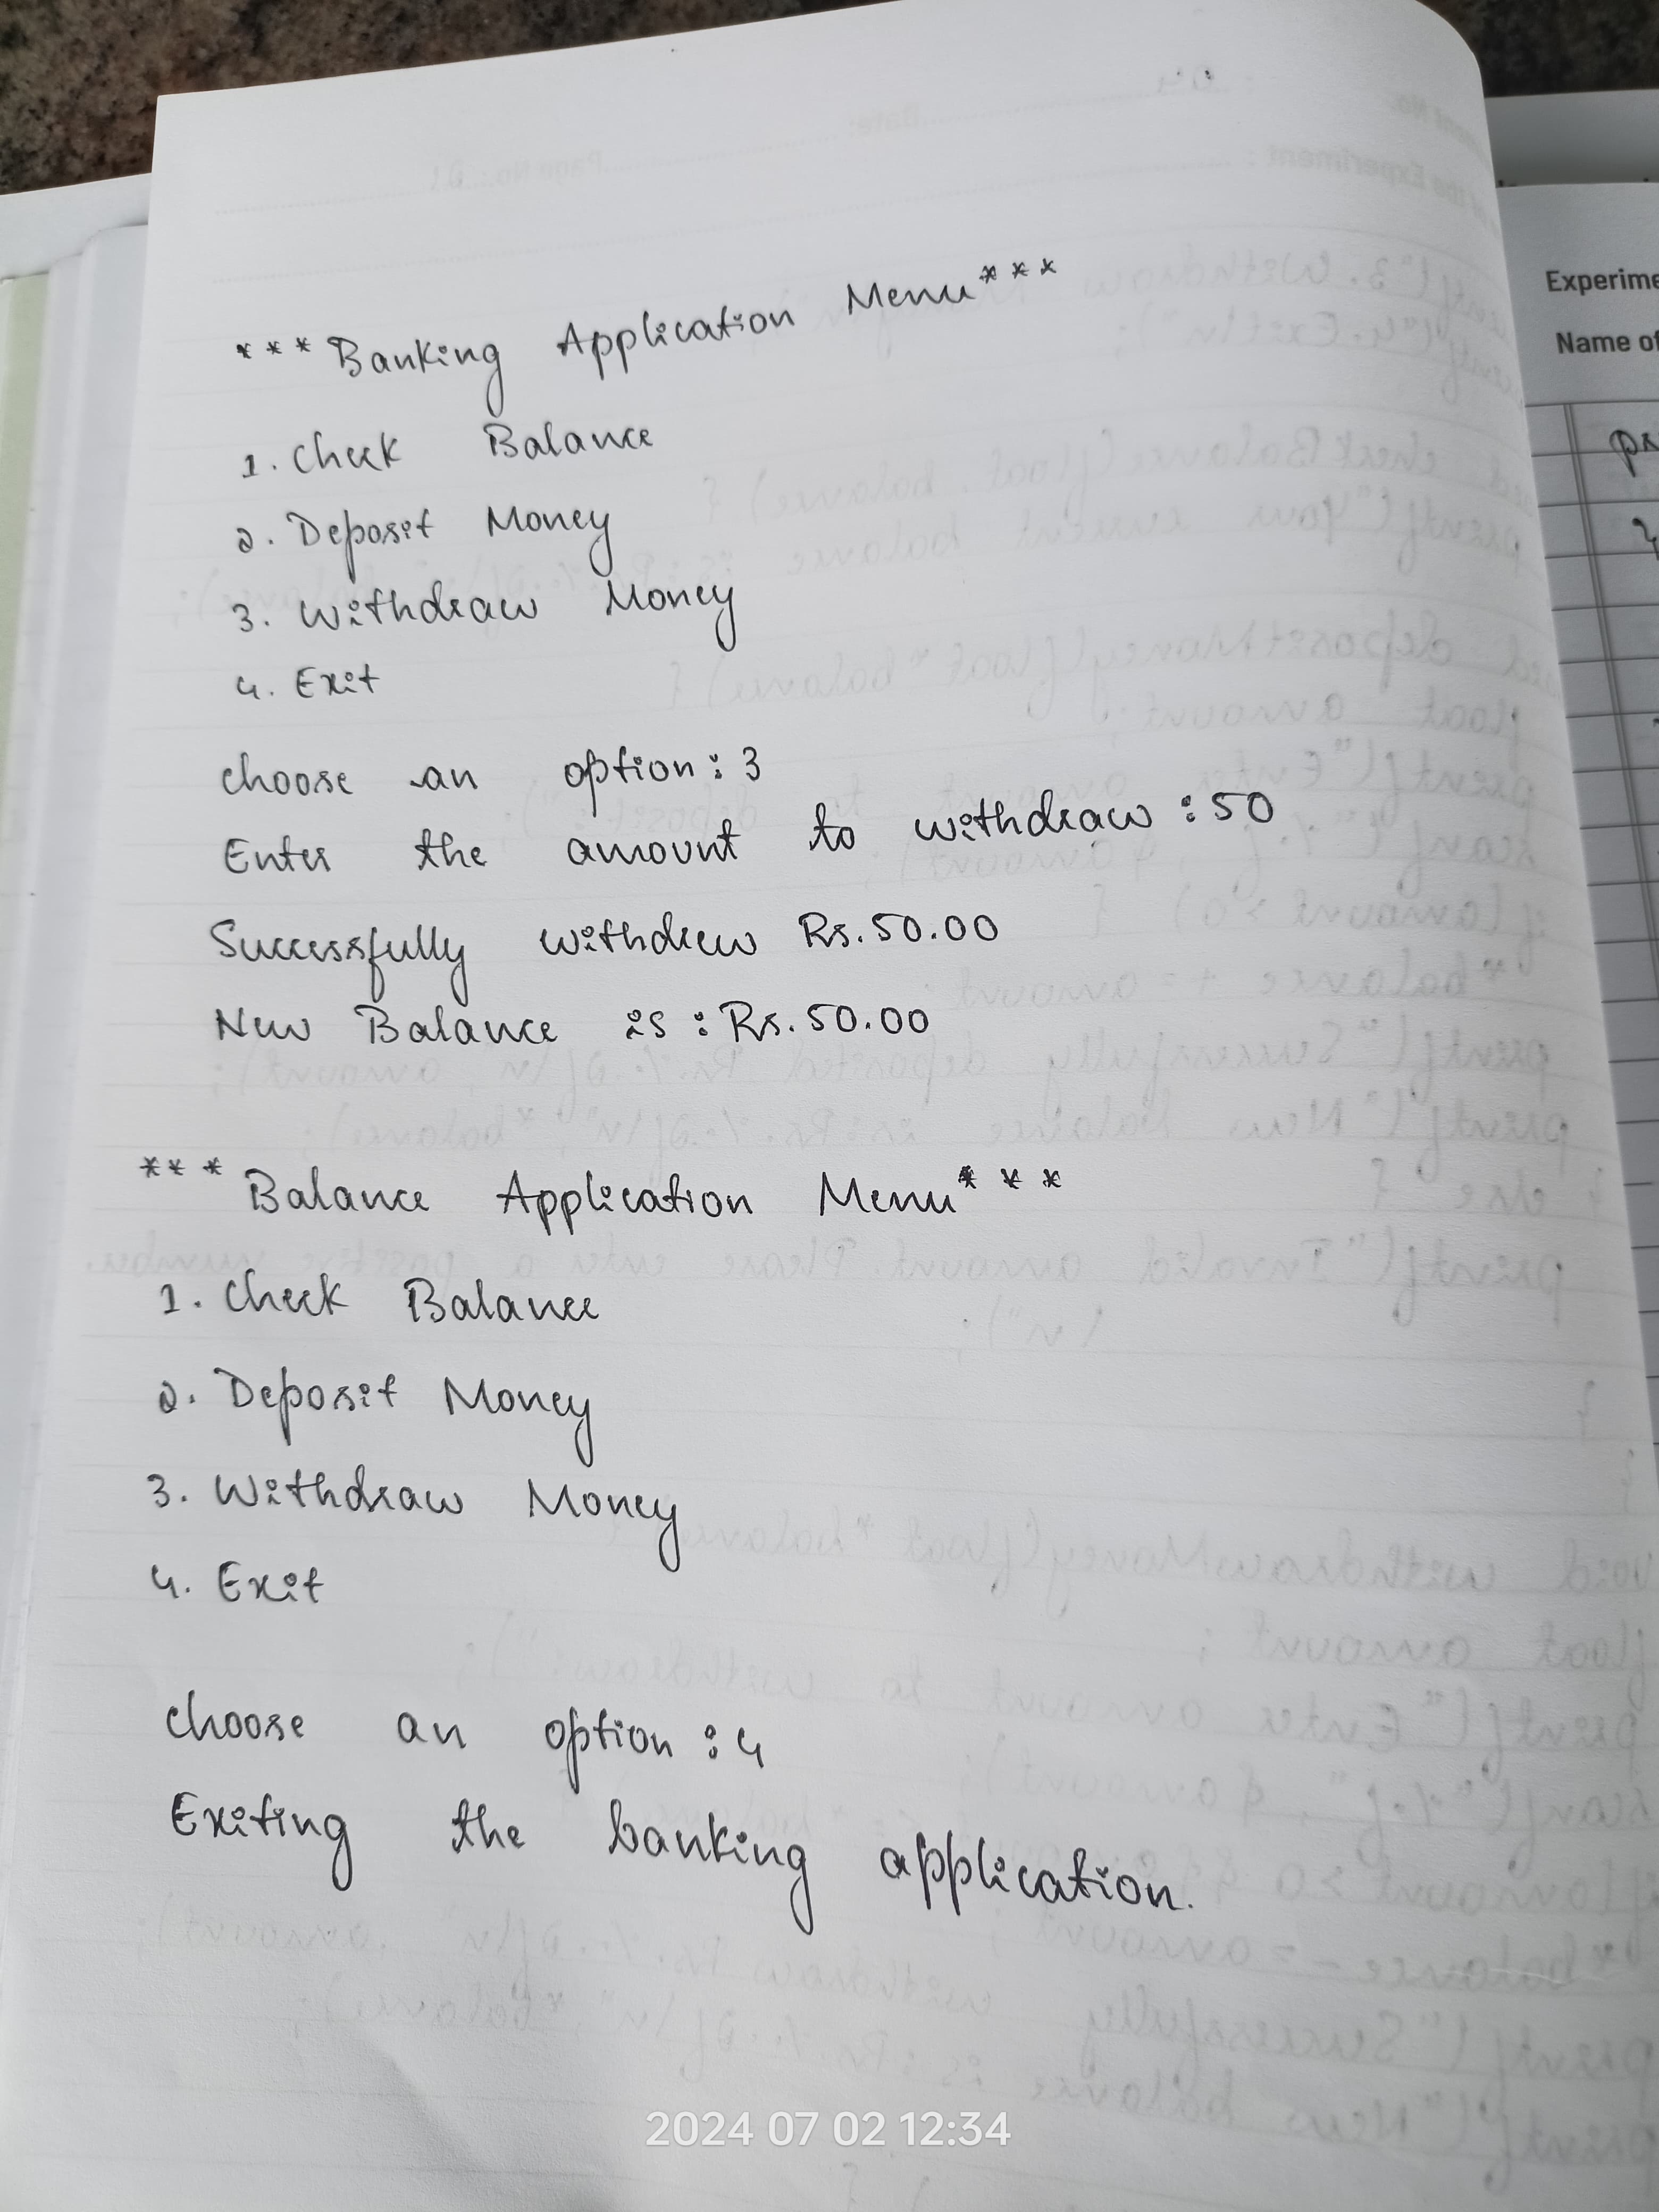 *** Banking Application Menu***
1. Check Balance
2. Deposit Money
3. Withdraw Money
4. Exit
choose an option: 3
Enter the amount to withdraw : 50
Successfully withdrew Rs. 50.00
New Balance is : Rs. 50.00
*** Balance Application Menu***
1. Check Balance
2. Deposit Money
3. Withdraw Money
4. Exit
choose an option : 4
Exiting the banking application.
Name of
2024 07 02 12:34